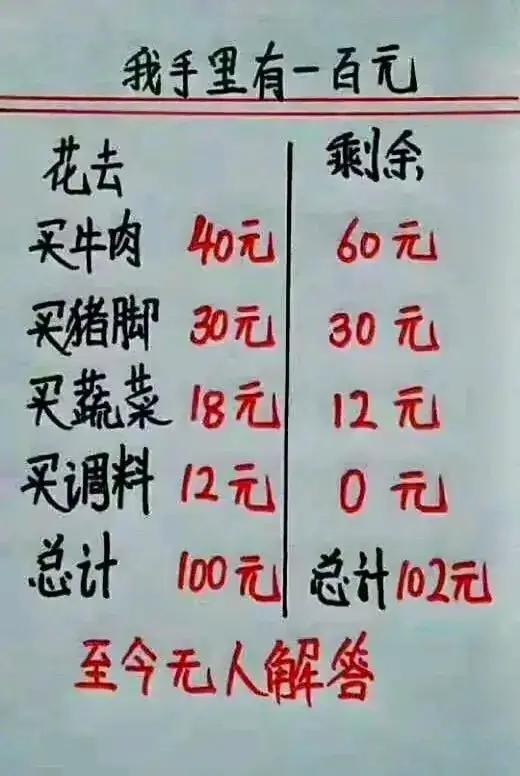 我手里有一百元
花去 剩余
买牛肉 40元 60元
买猪脚 30元 30元
买蔬菜 18元 12元
买调料 12元 0元
总计 100元 总计102元
至今无人解答